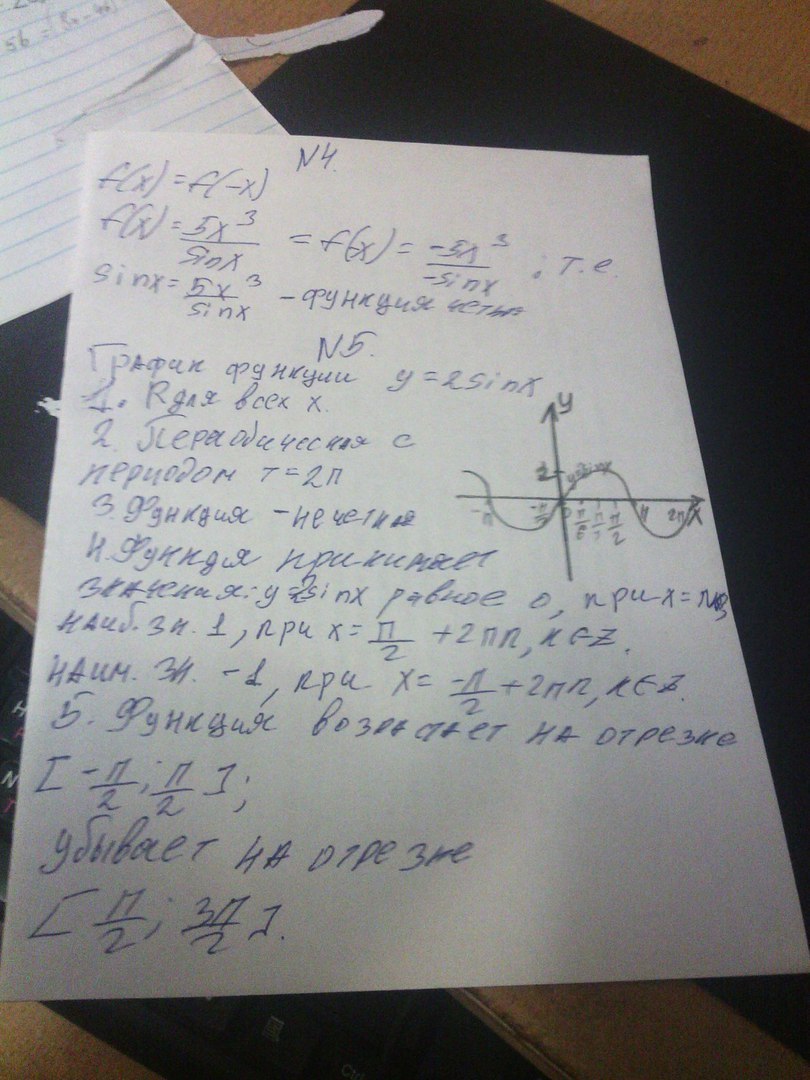 5b =
N4.
f(x)=f(-x)
f(x)= 5x³/sinx = f(-x) = -5x³/-sinx ; т.е.
sinx= 5x³/sinx - функция четная
N5.
График функции y=2sinx
1. R для всех x.
2. Периодическая с
периодом T=2π
3. Функция - нечетная
4. Функция принимает
значения: y=2sinx равное 0, при x=πn,
наиб. зн. 1, при x= π/2 +2πn, n∈Z.
наим. зн. -1, при x= -π/2 +2πn, n∈Z.
5. Функция возрастает на отрезке
[-π/2; π/2];
убывает на отрезке
[π/2; 3π/2].
y
2
y=2sinx
-π
0
π/6
π/2
π
2π
x
Ctrl